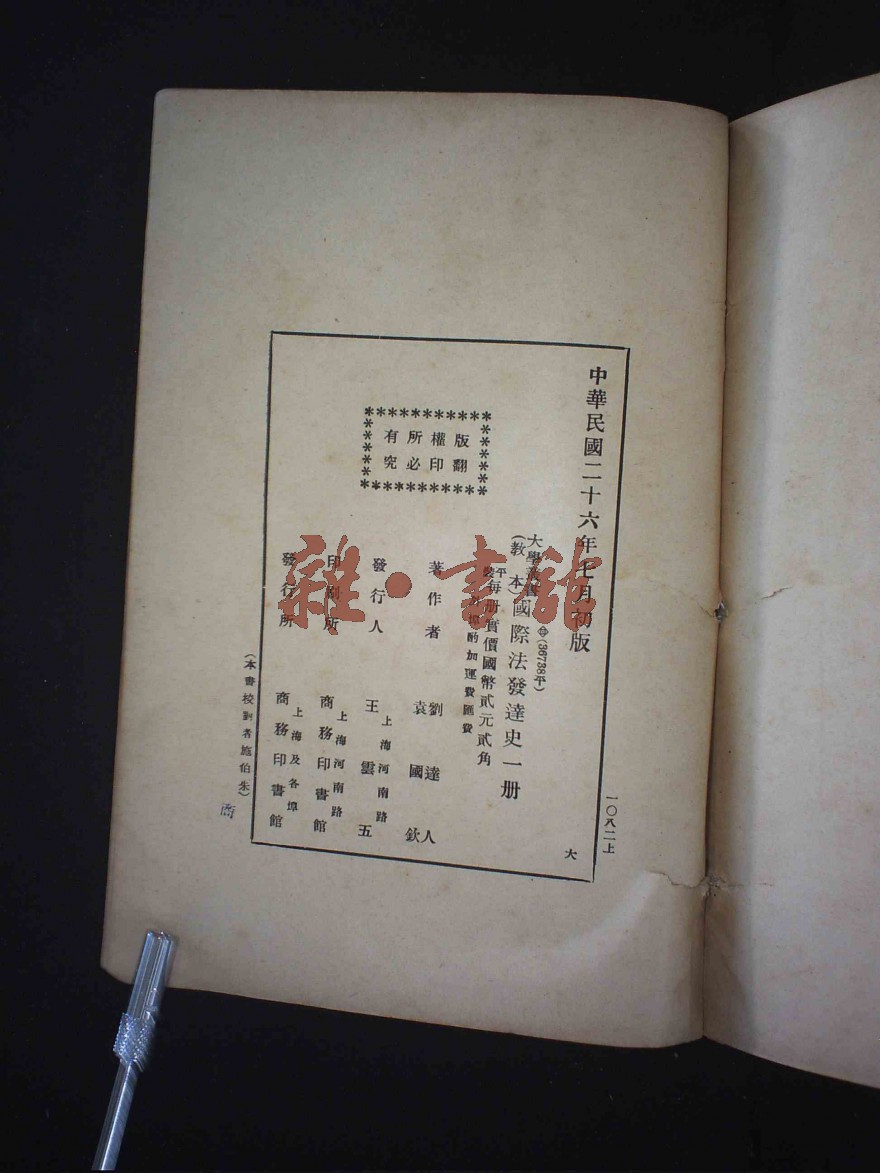 一〇八二上
中華民國二十六年七月初版
大學叢書
(教本)
國際法發達史一册
(36738平)
平裝
每册實價國幣貳元貳角
外埠酌加運費匯費
著作者
劉達人
袁國欽
發行人
王雲五
上海河南路
印刷所
商務印書館
上海河南路
發行所
商務印書館
上海及各埠
版權所有
翻印必究
大
(本書校對者施伯朱)
商
雜·書館